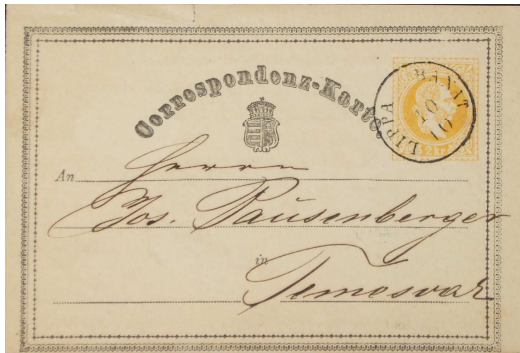 Correspondenz-Karte
LIPPA BANAT
10
10
2 KR
An Herrn
Jos. Pausenberger
in
Temosvar